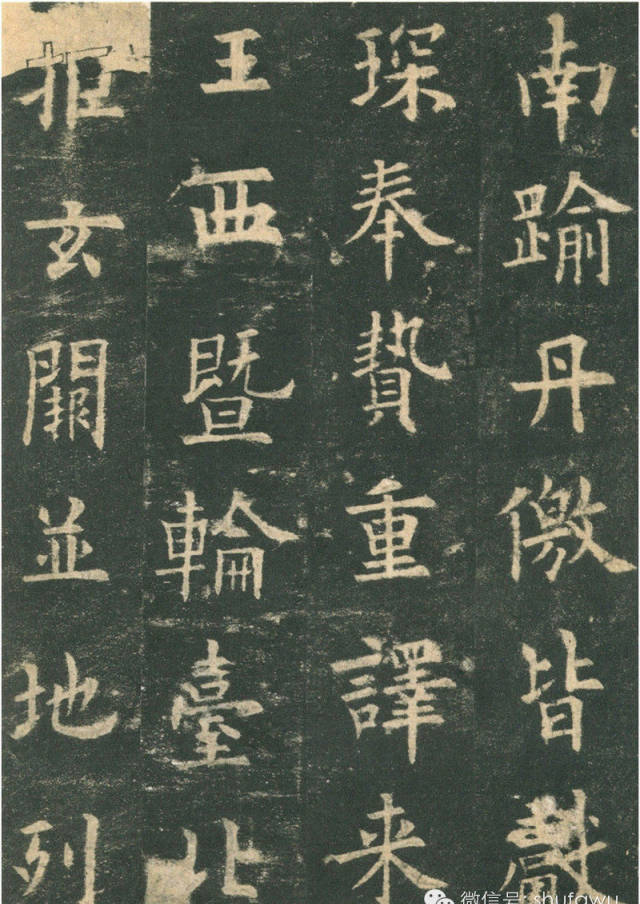 南踰丹儌皆獻
琛奉贄重譯来
王西暨輪臺北
拒玄闕並地列
微信号: shufawu